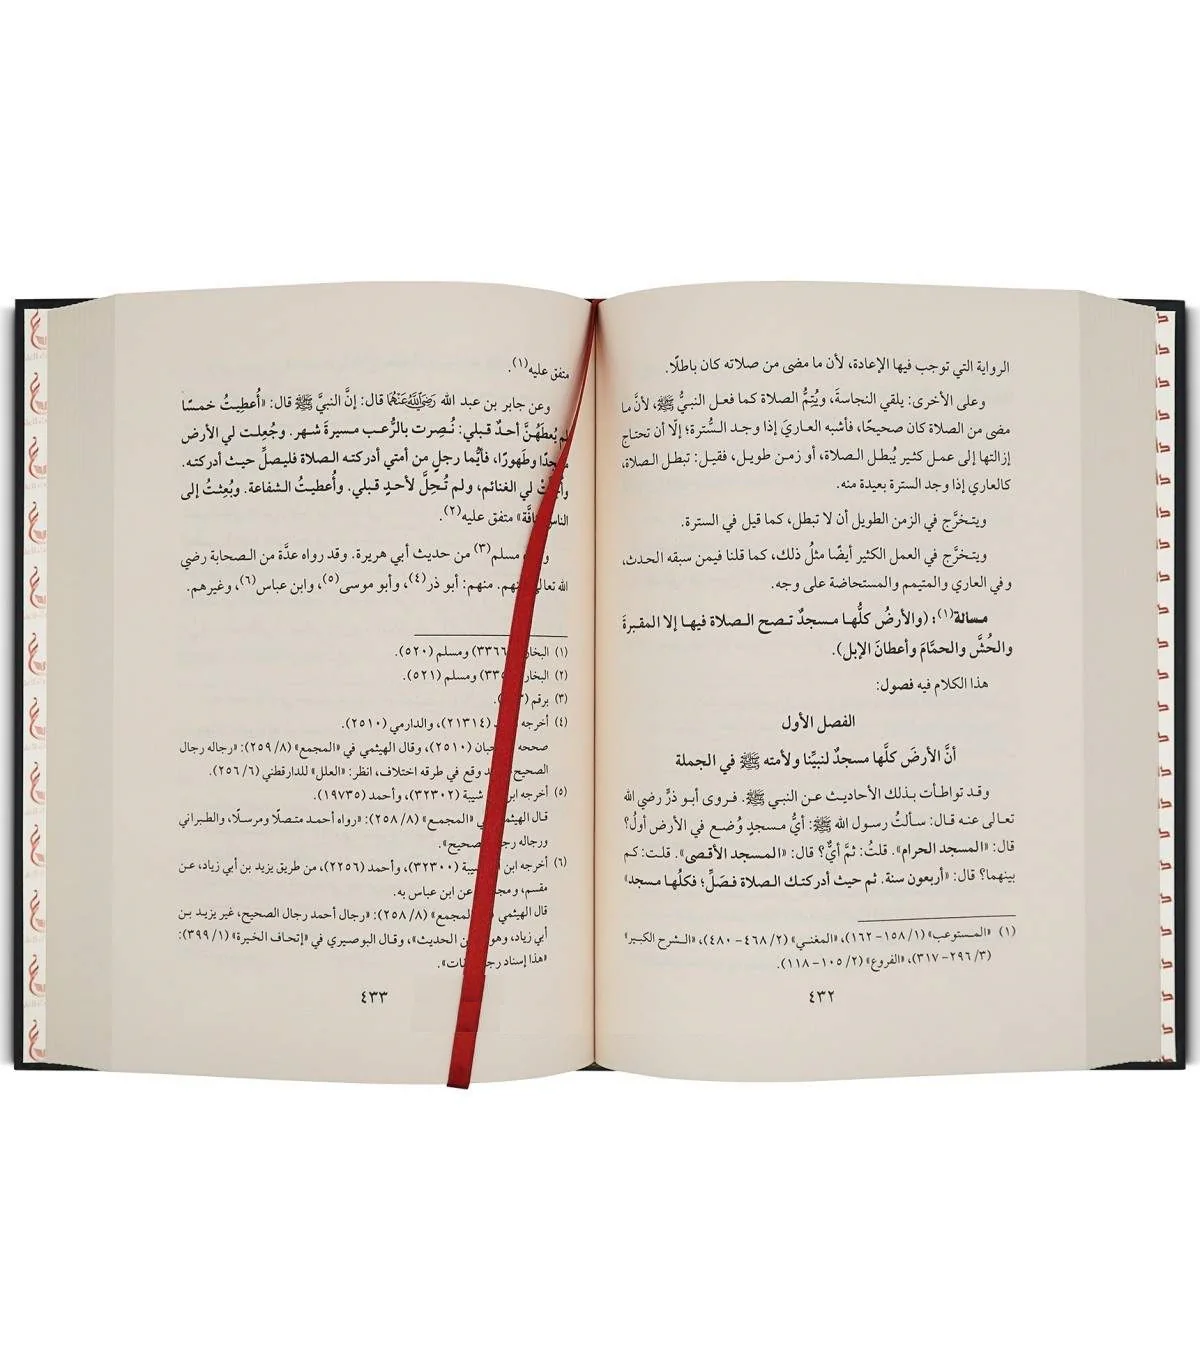 الرواية التي توجب فيها الإعادة، لأن ما مضى من صلاته كان باطلًا.
وعلى الأخرى: يلقي النجاسةَ، ويُتِمُّ الصلاة كما فعل النبيُّ ﷺ، لأنَّ ما
مضى من الصلاة كان صحيحًا، فأشبه العاريَ إذا وجد السُّترة؛ إلّا أن تحتاج
إزالتها إلى عمل كثير يُبطل الصلاة، أو زمن طويل، فقيل: تبطل الصلاة،
كالعاري إذا وجد السترة بعيدة منه.
ويتخرَّج في الزمن الطويل أن لا تبطل، كما قيل في السترة.
ويتخرَّج في العمل الكثير أيضًا مثلُ ذلك، كما قلنا فيمن سبقه الحدث،
وفي العاري والمتيمم والمستحاضة على وجه.
مسألة(١): (والأرضُ كلُّها مسجدٌ تصح الصلاة فيها إلا المقبرةَ
والحُشَّ والحمَّامَ وأعطانَ الإبل).
هذا الكلام فيه فصول:
الفصل الأول
أنَّ الأرضَ كلَّها مسجدٌ لنبيِّنا ولأمته ﷺ في الجملة
وقد تواطأت بذلك الأحاديث عن النبي ﷺ. فروى أبو ذرٍّ رضي الله
تعالى عنه قال: سألتُ رسول الله ﷺ: أيُّ مسجدٍ وُضع في الأرض أولُ؟
قال: «المسجد الحرام». قلتُ: ثمَّ أيٌّ؟ قال: «المسجد الأقصى». قلت: كم
بينهما؟ قال: «أربعون سنة. ثم حيث أدركتك الصلاة فصَلِّ؛ فكلُّها مسجد»
(١) «المستوعب» (١/ ١٥٨-١٦٢)، «المغني» (٢/ ٤٦٨-٤٨٠)، «الشرح الكبير»
(٣/ ٢٩٦-٣١٧)، «الفروع» (٢/ ١٠٥-١١٨).
٤٣٢
متفق عليه(١).
وعن جابر بن عبد الله رَضِيَ اللَّهُ عَنْهُمَا قال: إنَّ النبيَّ ﷺ قال: «أُعطِيتُ خمسًا
لم يُعطَهُنَّ أحدٌ قبلي: نُصِرت بالرُّعب مسيرةَ شهر. وجُعِلت لي الأرض
مسجدًا وطَهورًا، فأيُّما رجلٍ من أمتي أدركته الصلاة فليصلِّ حيث أدركته.
لي الغنائم، ولم تُحِلَّ لأحدٍ قبلي. وأُعطيتُ الشفاعة. وبُعِثتُ إلى
الناس كافَّة» متفق عليه(٢).
مسلم(٣) من حديث أبي هريرة. وقد رواه عدَّة من الصحابة رضي
الله تعالى عنهم. منهم: أبو ذر(٤)، وأبو موسى(٥)، وابن عباس(٦)، وغيرهم.
(١) البخاري ومسلم (٥٢٠).
(٢) البخاري ومسلم (٥٢١).
(٣) برقم
(٤) أخرجه (٢١٣١٤)، والدارمي (٢٥١٠).
صححه حبان (٢٥١٠)، وقال الهيثمي في «المجمع» (٨/ ٢٥٩): «رجاله رجال
الصحيح» وقع في طرقه اختلاف، انظر: «العلل» للدارقطني (٦/ ٢٥٦).
(٥) أخرجه ابن شيبة (٣٢٣٠٢)، وأحمد (١٩٧٣٥).
قال الهيثمي في «المجمع» (٨/ ٢٥٨): «رواه أحمد متصلًا ومرسلًا، والطبراني
ورجاله رجال الصحيح».
(٦) أخرجه ابن شيبة (٣٢٣٠٠)، وأحمد (٢٢٥٦)، من طريق يزيد بن أبي زياد، عن
مقسم، عن ابن عباس به.
قال الهيثمي «المجمع» (٨/ ٢٥٨): «رجال أحمد رجال الصحيح، غير يزيد بن
أبي زياد، وهو الحديث»، وقال البوصيري في «إتحاف الخيرة» (١/ ٣٩٩):
«هذا إسناد».
٤٣٣